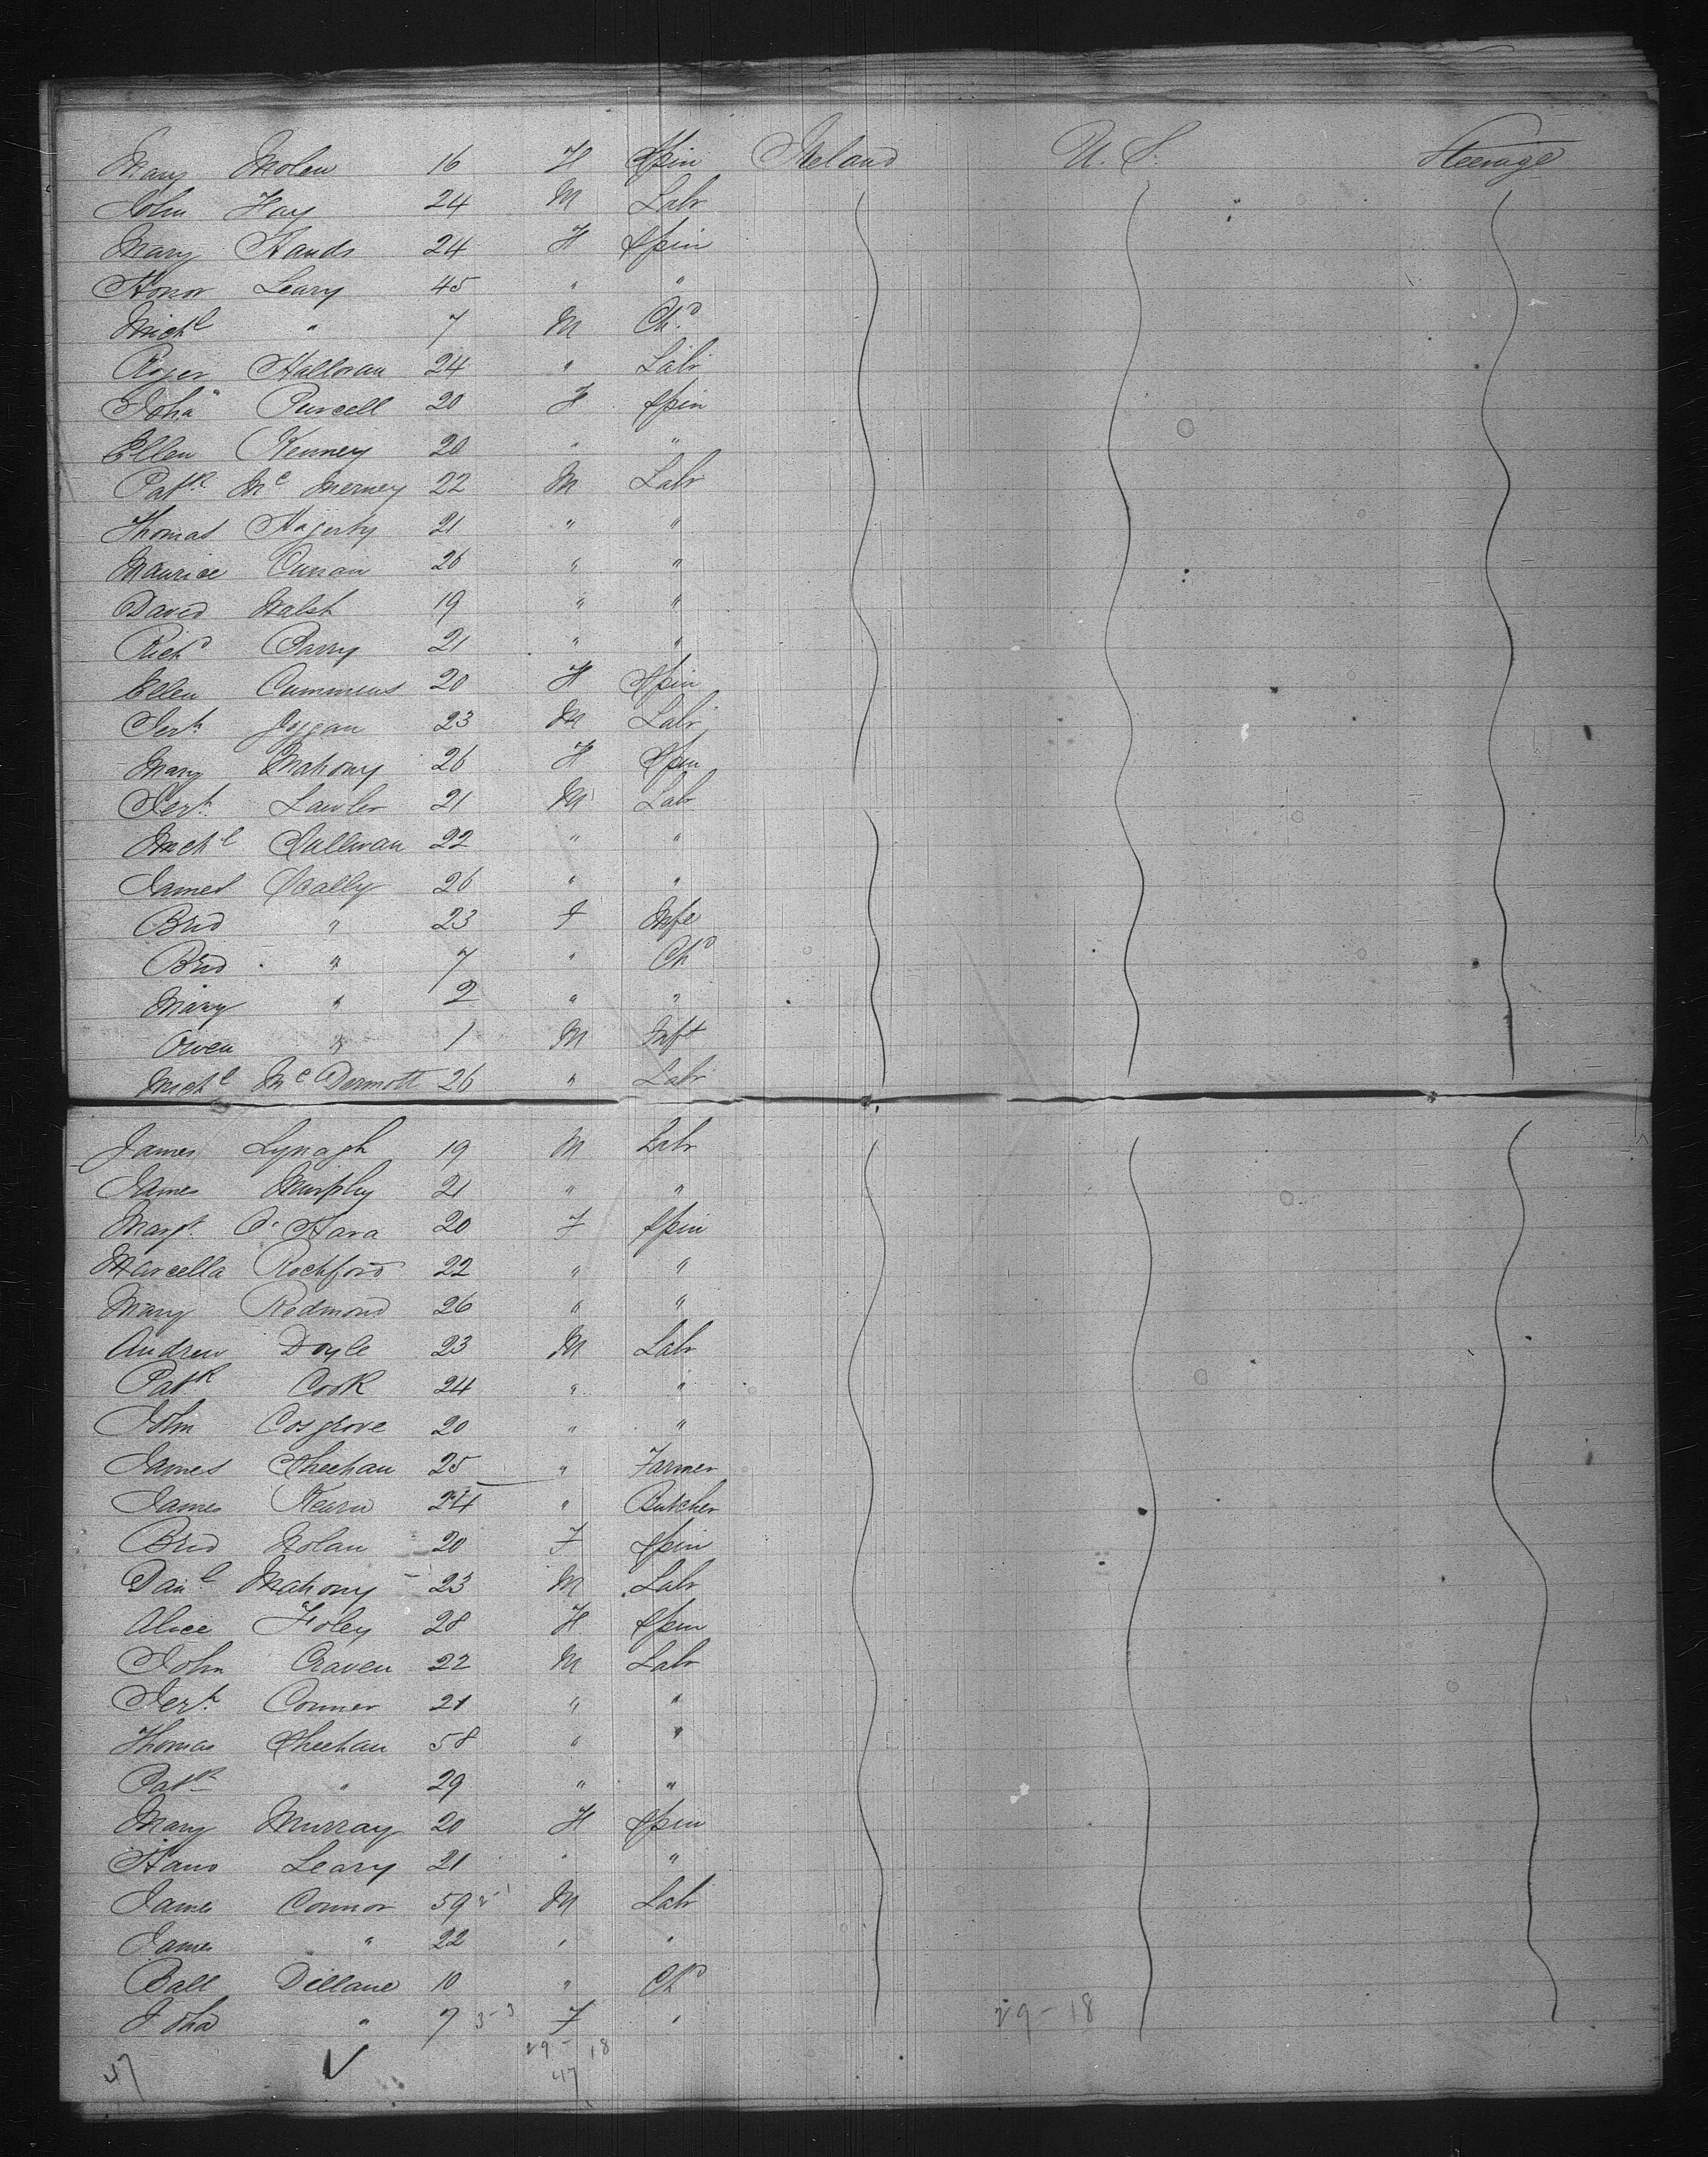 Mary Nolan 16 F Spin Ireland U. S. Steerage
John Fay 24 M Labr
Mary Hands 24 F Spin
Honor Leary 45 " "
Michl " 7 M Chd
Roger Halloran 24 " Labr
Joha Purcell 20 F Spin
Ellen Kenney 20 " "
Patk Mc Inerney 22 M Labr
Thomas Hagerty 21 " "
Maurice Curran 26 " "
David Walsh 19 " "
Richd Barry 21 " "
Ellen Cummens 20 F Spin
Jerh Goggan 23 M Labr
Mary Mahony 26 F Spin
Jerh Lawler 21 M Labr
Michl Sullivan 22 " "
James Scally 26 " "
Brid " 23 F Wife
Brid " 7 " Chd
Mary " 2 " "
Owen " 1 M Inft
Michl McDermott 26 " Labr
James Lynagh 19 M Labr
James Murphy 21 " "
Margt O'Hara 20 F Spin
Marcella Rochford 22 " "
Mary Redmond 26 " "
Andrew Doyle 23 M Labr
Patk Cook 24 " "
John Cosgrove 20 " "
James Sheehan 25 " Farmer
James Kearn 24 " Butcher
Brid Nolan 20 F Spin
Danl Mahony 23 M Labr
Alice Foley 28 F Spin
John Craven 22 M Labr
Jerh Conner 21 " "
Thomas Sheehan 58 " "
Patk " 29 " "
Mary Murray 20 F Spin
Hano Leary 21 " "
James Connor 59 M Labr
James " 22 " "
Batt Dillane 10 " Chd
Joha " 7 3-3 F " 29-18
29-18
47 47